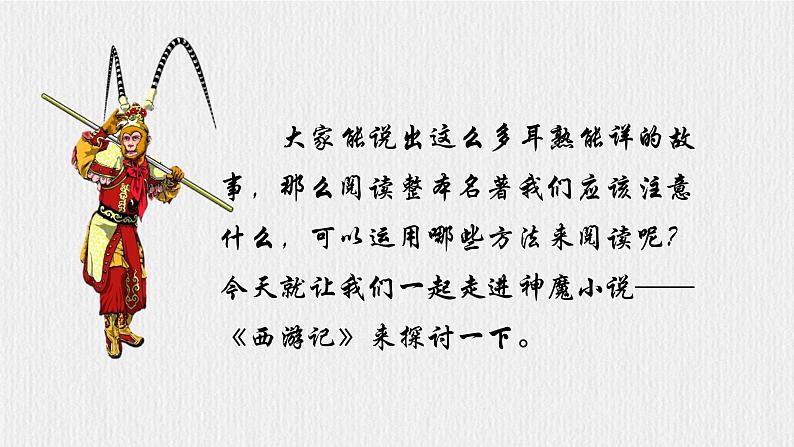 大家能说出这么多耳熟能详的故
事，那么阅读整本名著我们应该注意
什么，可以运用哪些方法来阅读呢？
今天就让我们一起走进神魔小说——
《西游记》来探讨一下。